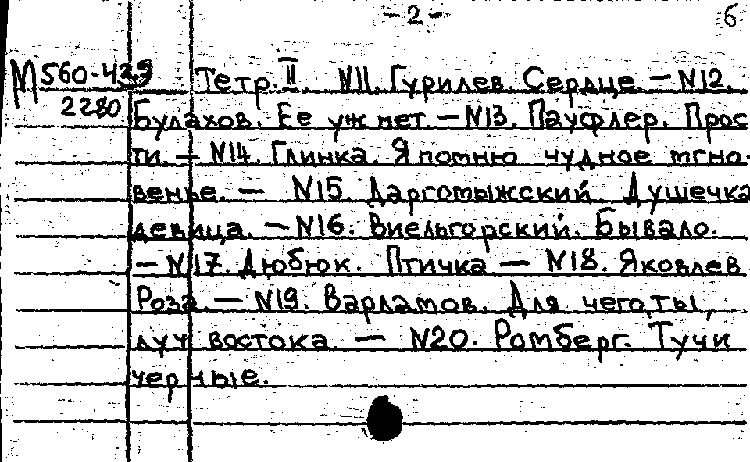 -2- б
М560-429 Тетр. II. N11. Гурилев. Сердце. — N12.
2280 Булахов. Ее уж нет. — N13. Пауфлер. Прос
ти. — N14. Глинка. Я помню чудное мгно-
венье. — N15. Даргомыжский. Душечка
девица. — N16. Виельгорский. Бывало.
— N17. Дюбюк. Птичка — N18. Яковлев
Роза. — N19. Варламов. Для чего, ты,
луч востока. — N20. Ромберг. Тучи
черные.